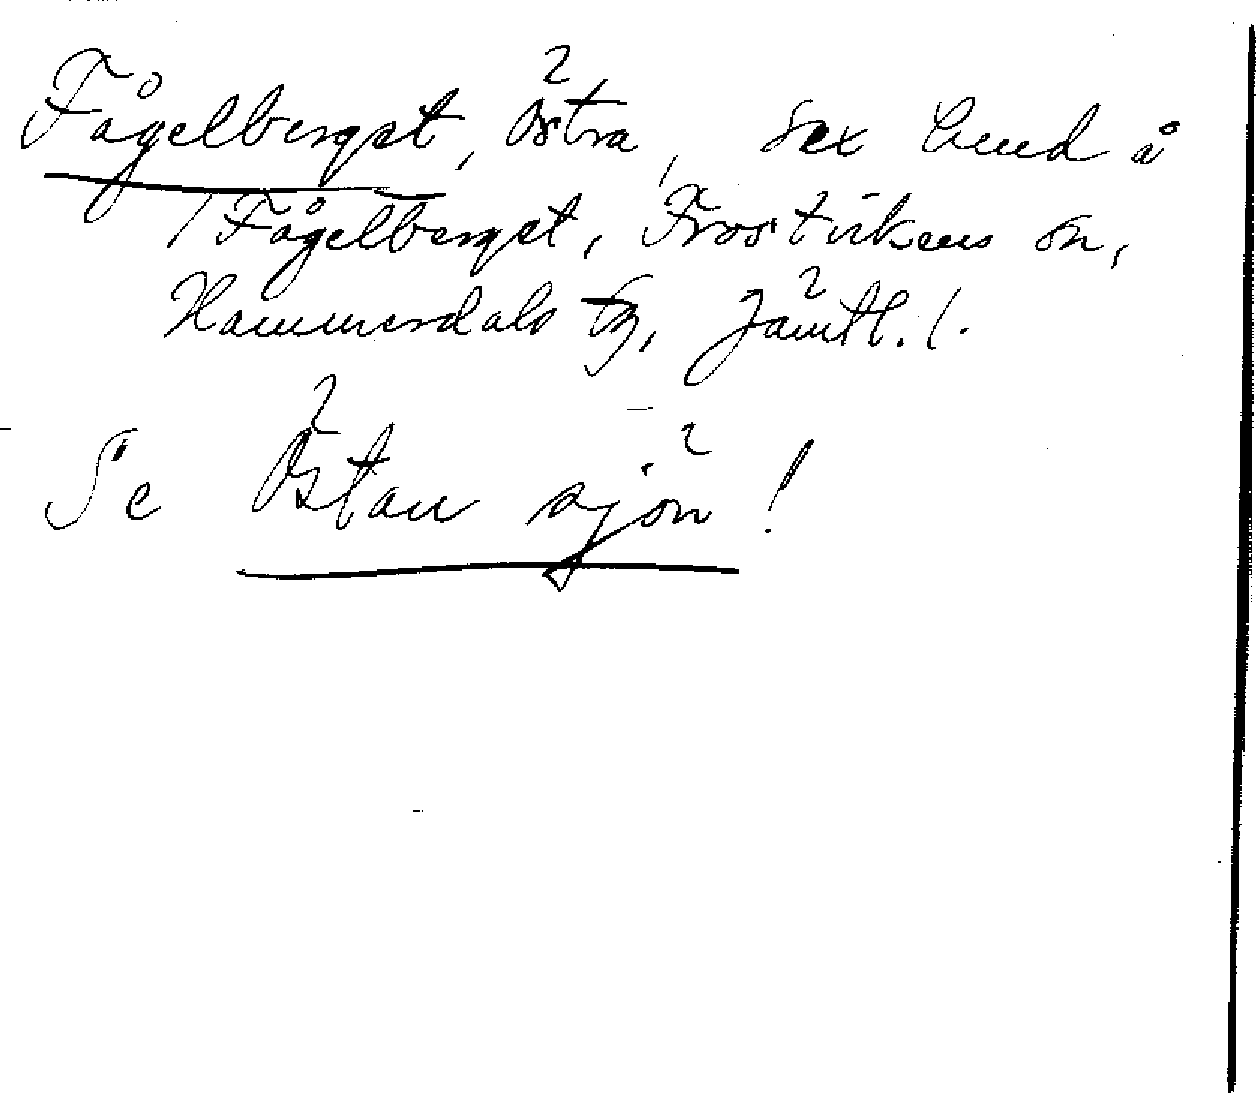 Fågelberget, Östra, sex hemd å
/Fågelberget, Frostvikens sn,
Hammerdals tg, Jämtl./.
Se Östan sjön!